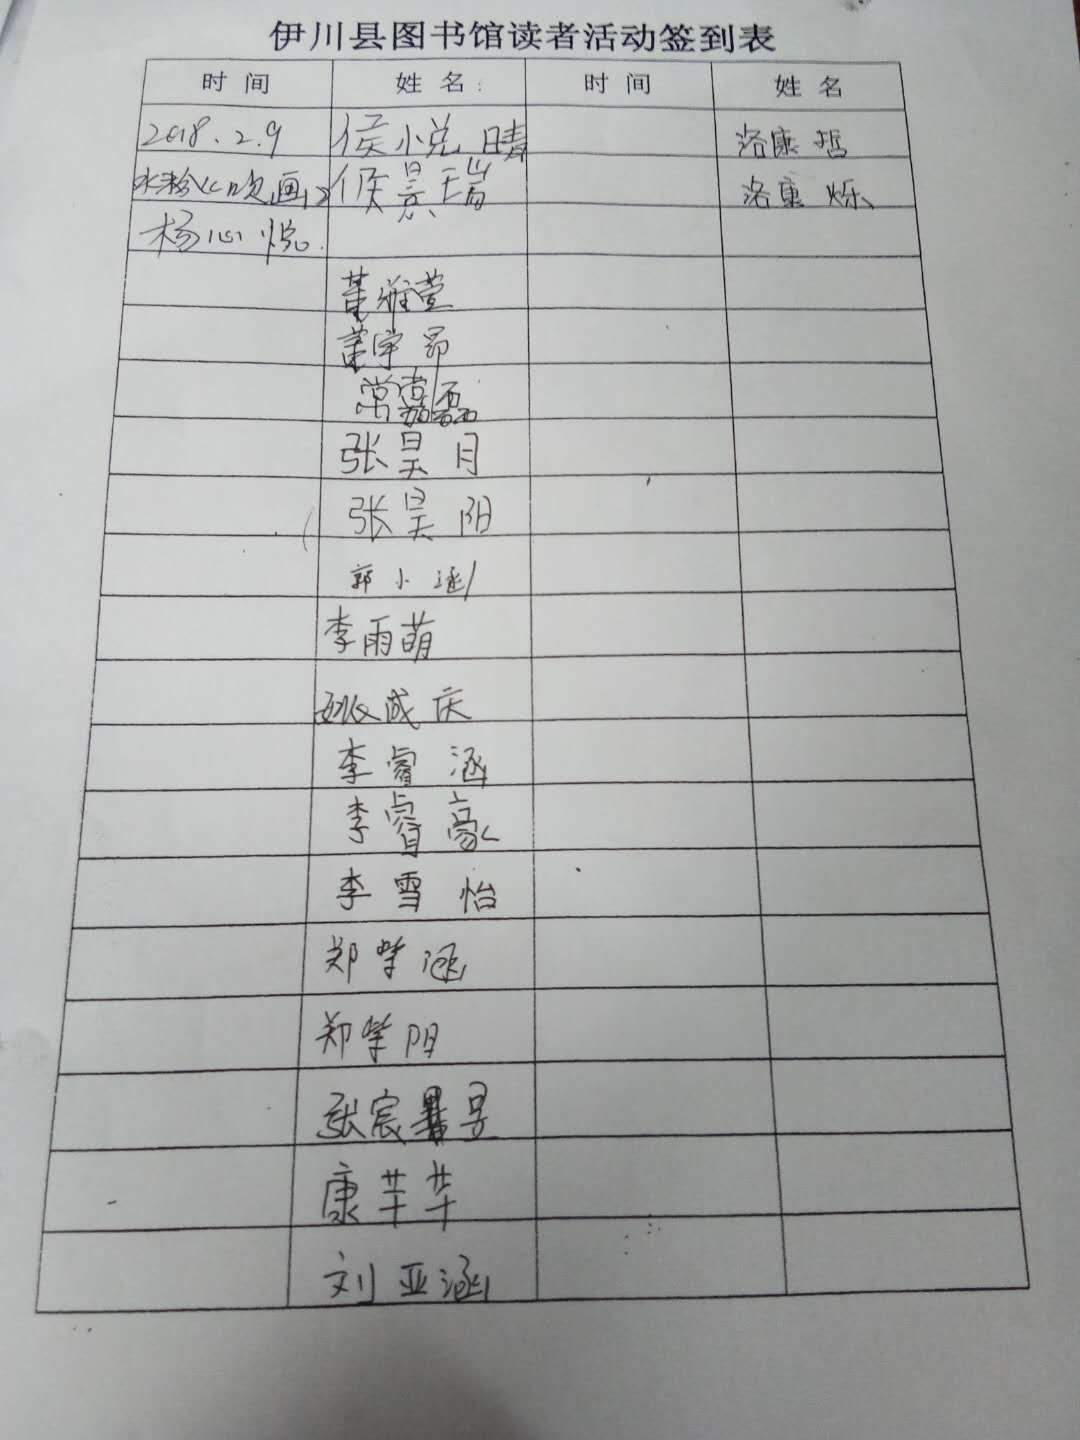 伊川县图书馆读者活动签到表
时间 姓名: 时间 姓名
2018.2.9 侯小悦晴 洛康哲
水粉《吹画》 侯景瑞 洛康烁
杨心悦.
董维萱
董宇昂
常嘉磊
张昊月
张昊阳
郭小涵
李雨萌
成庆
李睿涵
李睿豪
李雪怡
郑荣涵
郑荣阳
张宸昱
康芊芊
刘亚涵